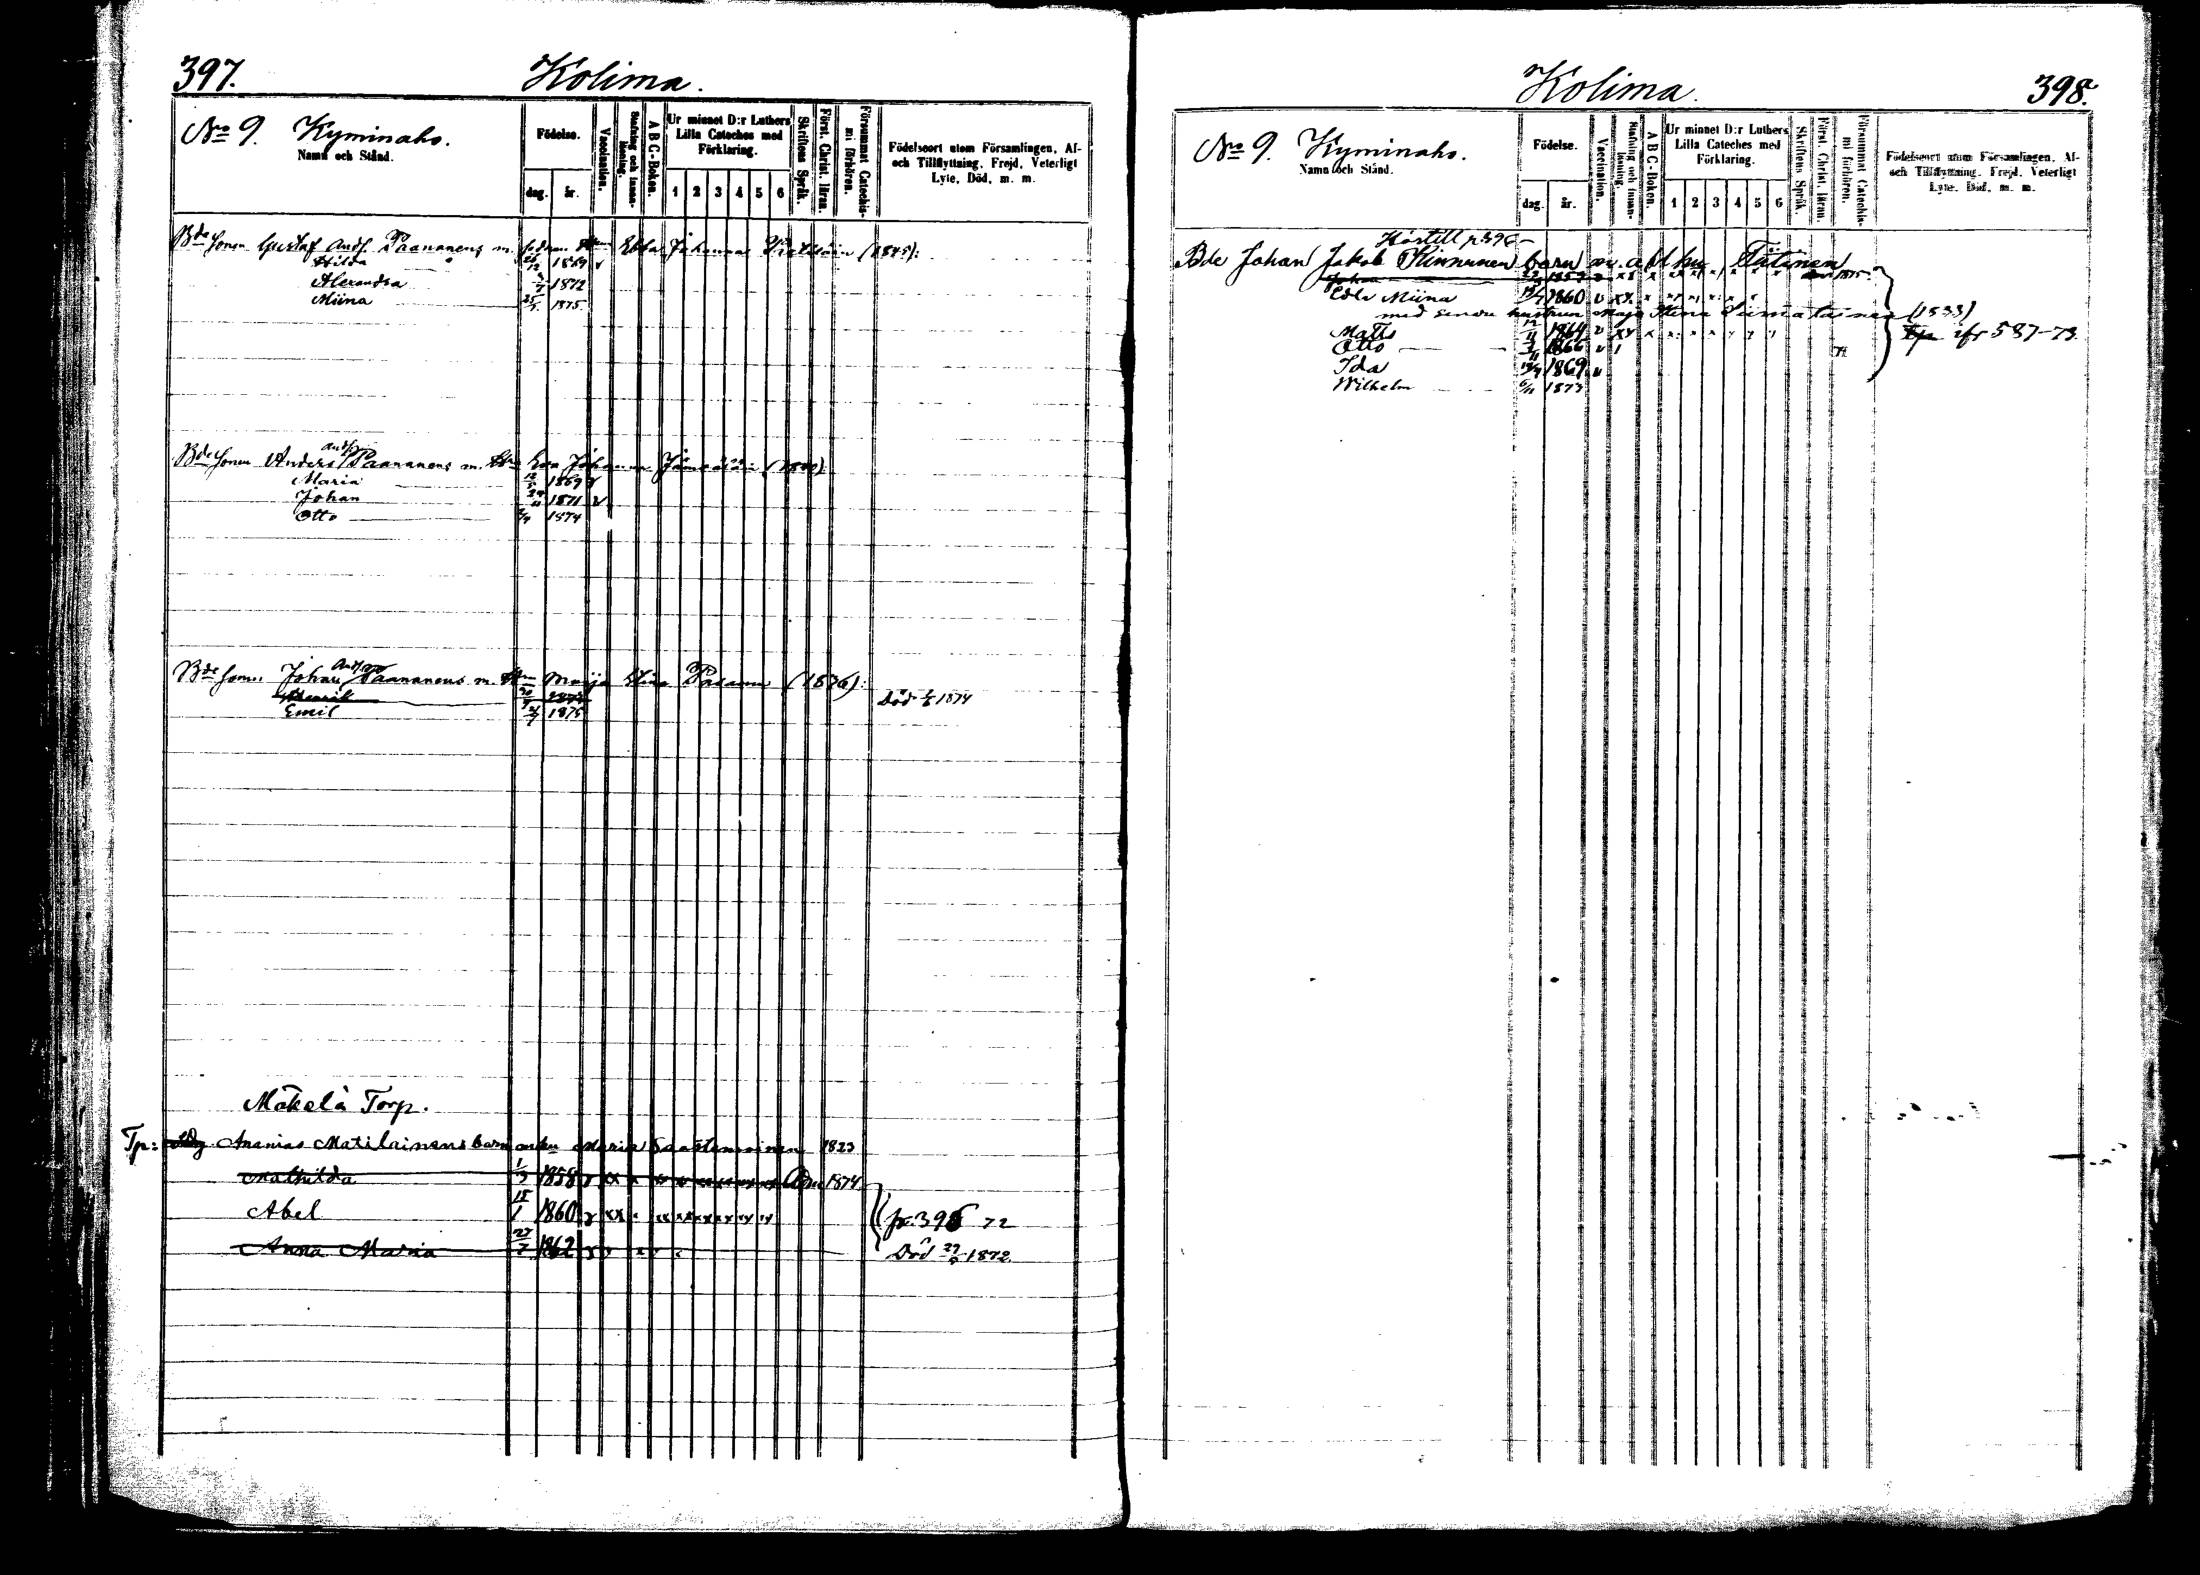 397.
Kolima.
No 9. Kyminaho.
Namn och Stånd.
Födelse.
dag. år.
Vaccination.
Stafning och innan-läsning.
A B C-Boken.
Ur minnet D:r Luthers
Lilla Cateches med
Förklaring.
1 2 3 4 5 6
Skriftens Språk.
Först. Christ. läran.
Försummat Catechis-mi förhören.
Födelseort utom Församlingen, Af-
och Tillflyttning, Frejd, Veterligt
Lyte, Död, m. m.
Bde sonen Gustaf Andss Paananens m. Ebba Johanna (1845):
Hilda 26/12 1869 v
Alexandra 1872
Miina 25/5 1875
Bde sonen Anders Andss Paananens m. Hu Eva Johanna
Maria 1869 v
Johan 1871 v
Otto 1874
Bde sonen Johan Andss Paananens m. Hu Maija Stina Pasanen (1836):
Henrik Död 1874
Emil 1875
Mäkelä Torp.
Tp: Ananias Matilainens barn Maria Saastamoinen 1823
Mathilda 1/3 1858 1874
Abel 18/1 1860 p. 396 72
Anna Maria 27/7 1862 Död 29/5 1872.
Kolima.
398.
No 9. Kyminaho.
Namn och Stånd.
Födelse.
dag. år.
Vaccination.
Stafning och innan-läsning.
A B C-Boken.
Ur minnet D:r Luthers
Lilla Cateches med
Förklaring.
1 2 3 4 5 6
Skriftens Språk.
Först. Christ. läran.
Försummat Catechis-mi förhören.
Födelseort utom Församlingen, Af-
och Tillflyttning, Frejd, Veterligt
Lyte, Död, m. m.
Hörtill p. 396
Bde Johan Jakob Hinnunen barn m. afl hu Tiitinen
Johan 1875
Edla Miina 1860 v
med senare hustrun Maja Stina Siimatainen (1833)
Matts 12/11 1864 v ifr 587-73.
Otto 1866 v
Ida 1869 v
Wilhelm 6/11 1873